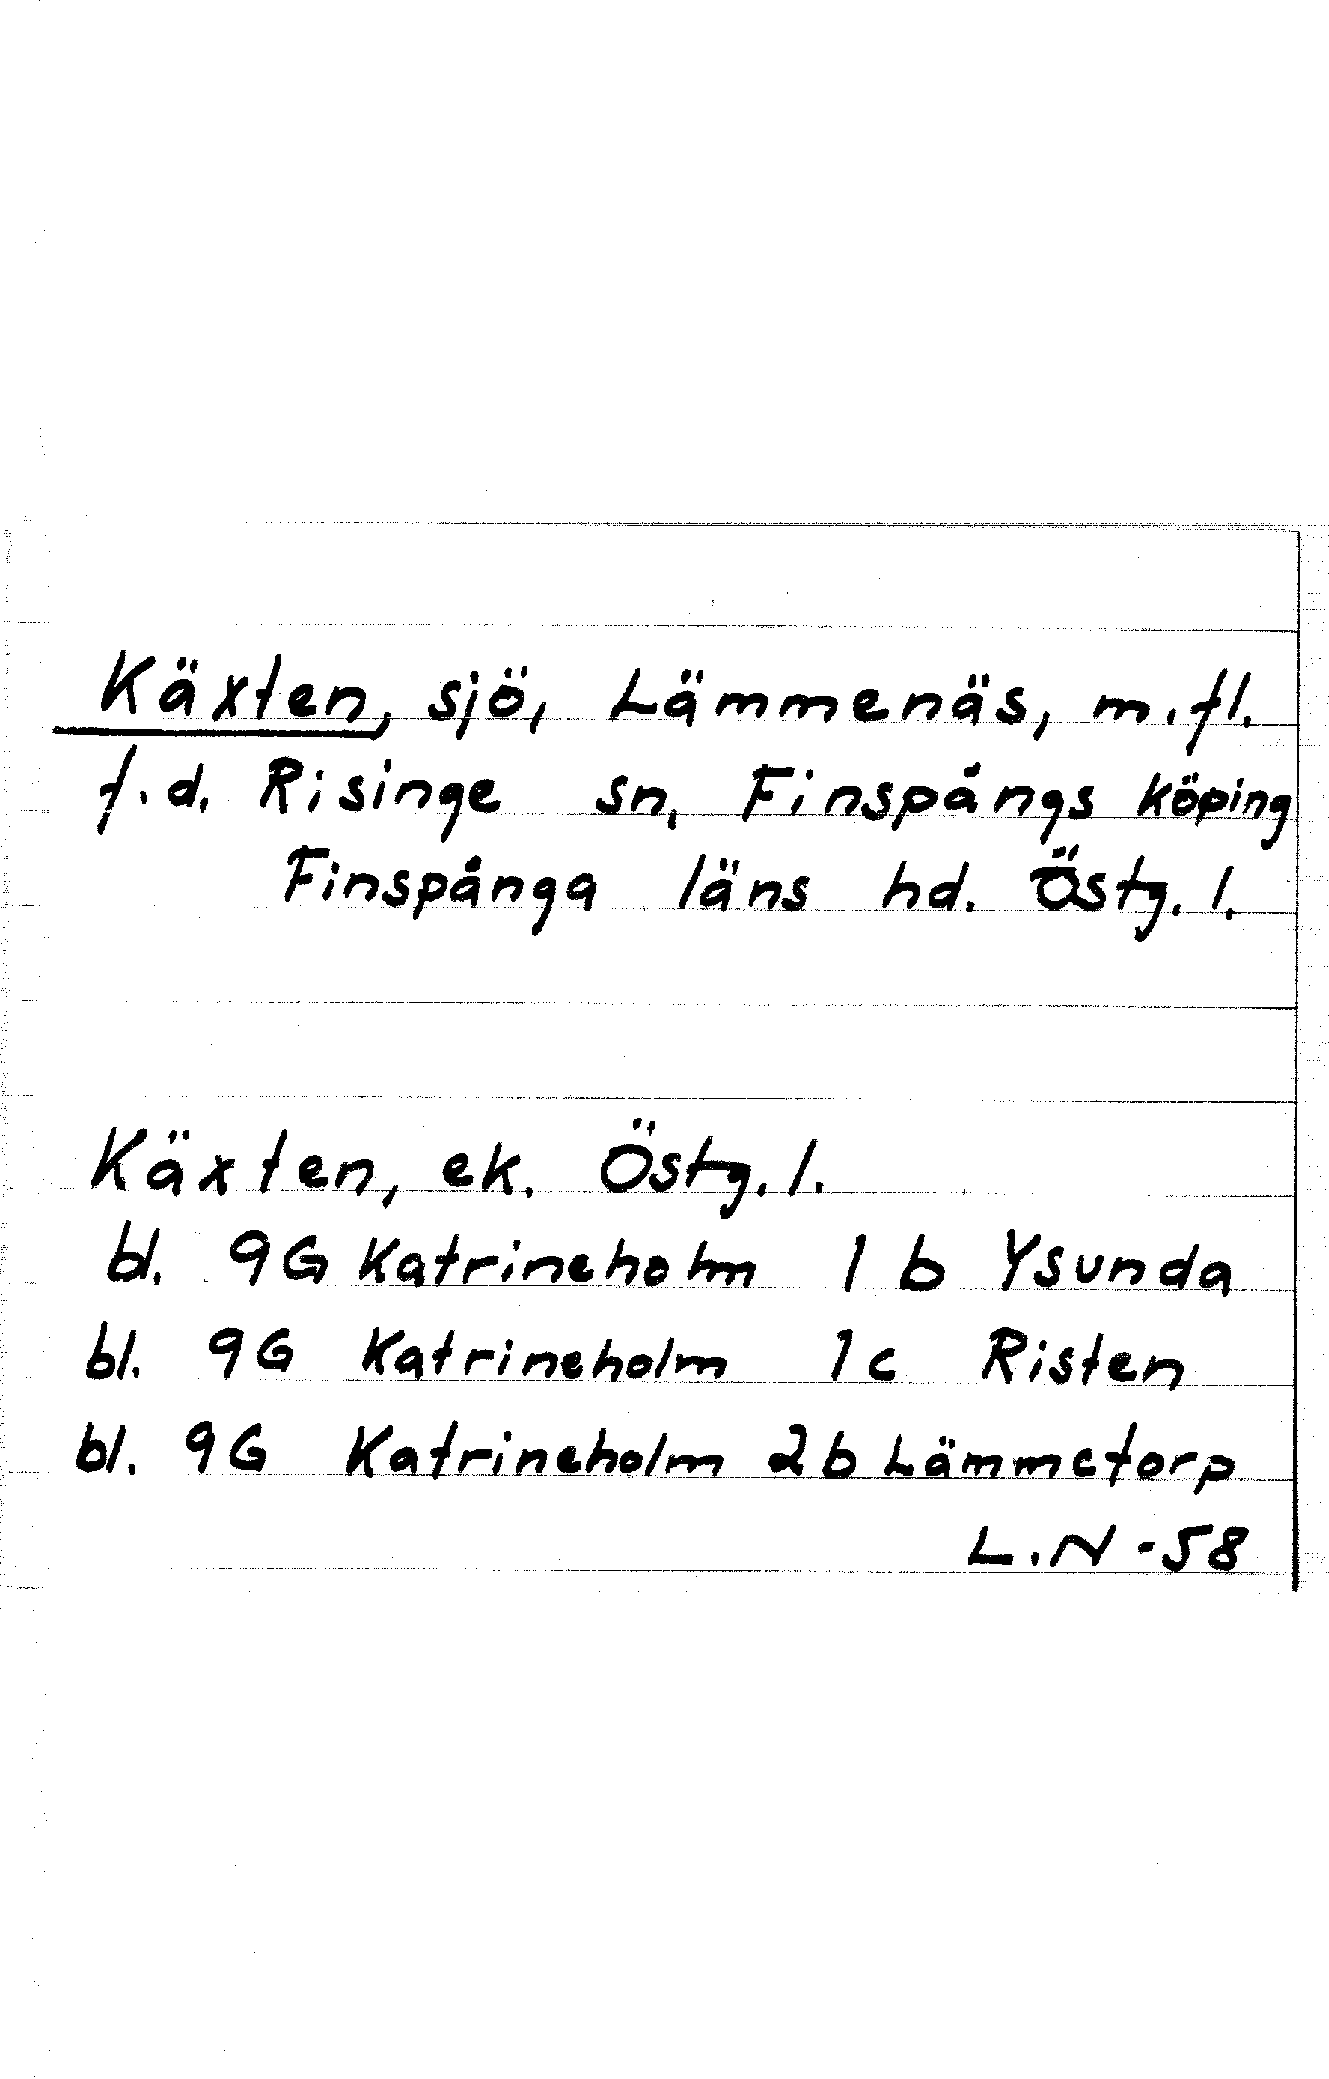 Käxten, sjö, Lämmenäs, m.fl.
f.d. Risinge sn, Finspångs köping
Finspånga läns hd. Östg. l.
Käxten, ek. Östg. l.
bl. 9G Katrineholm 1 b Ysunda
bl. 9G Katrineholm 1c Risten
bl. 9G Katrineholm 2b Lämmetorp
L.N -58